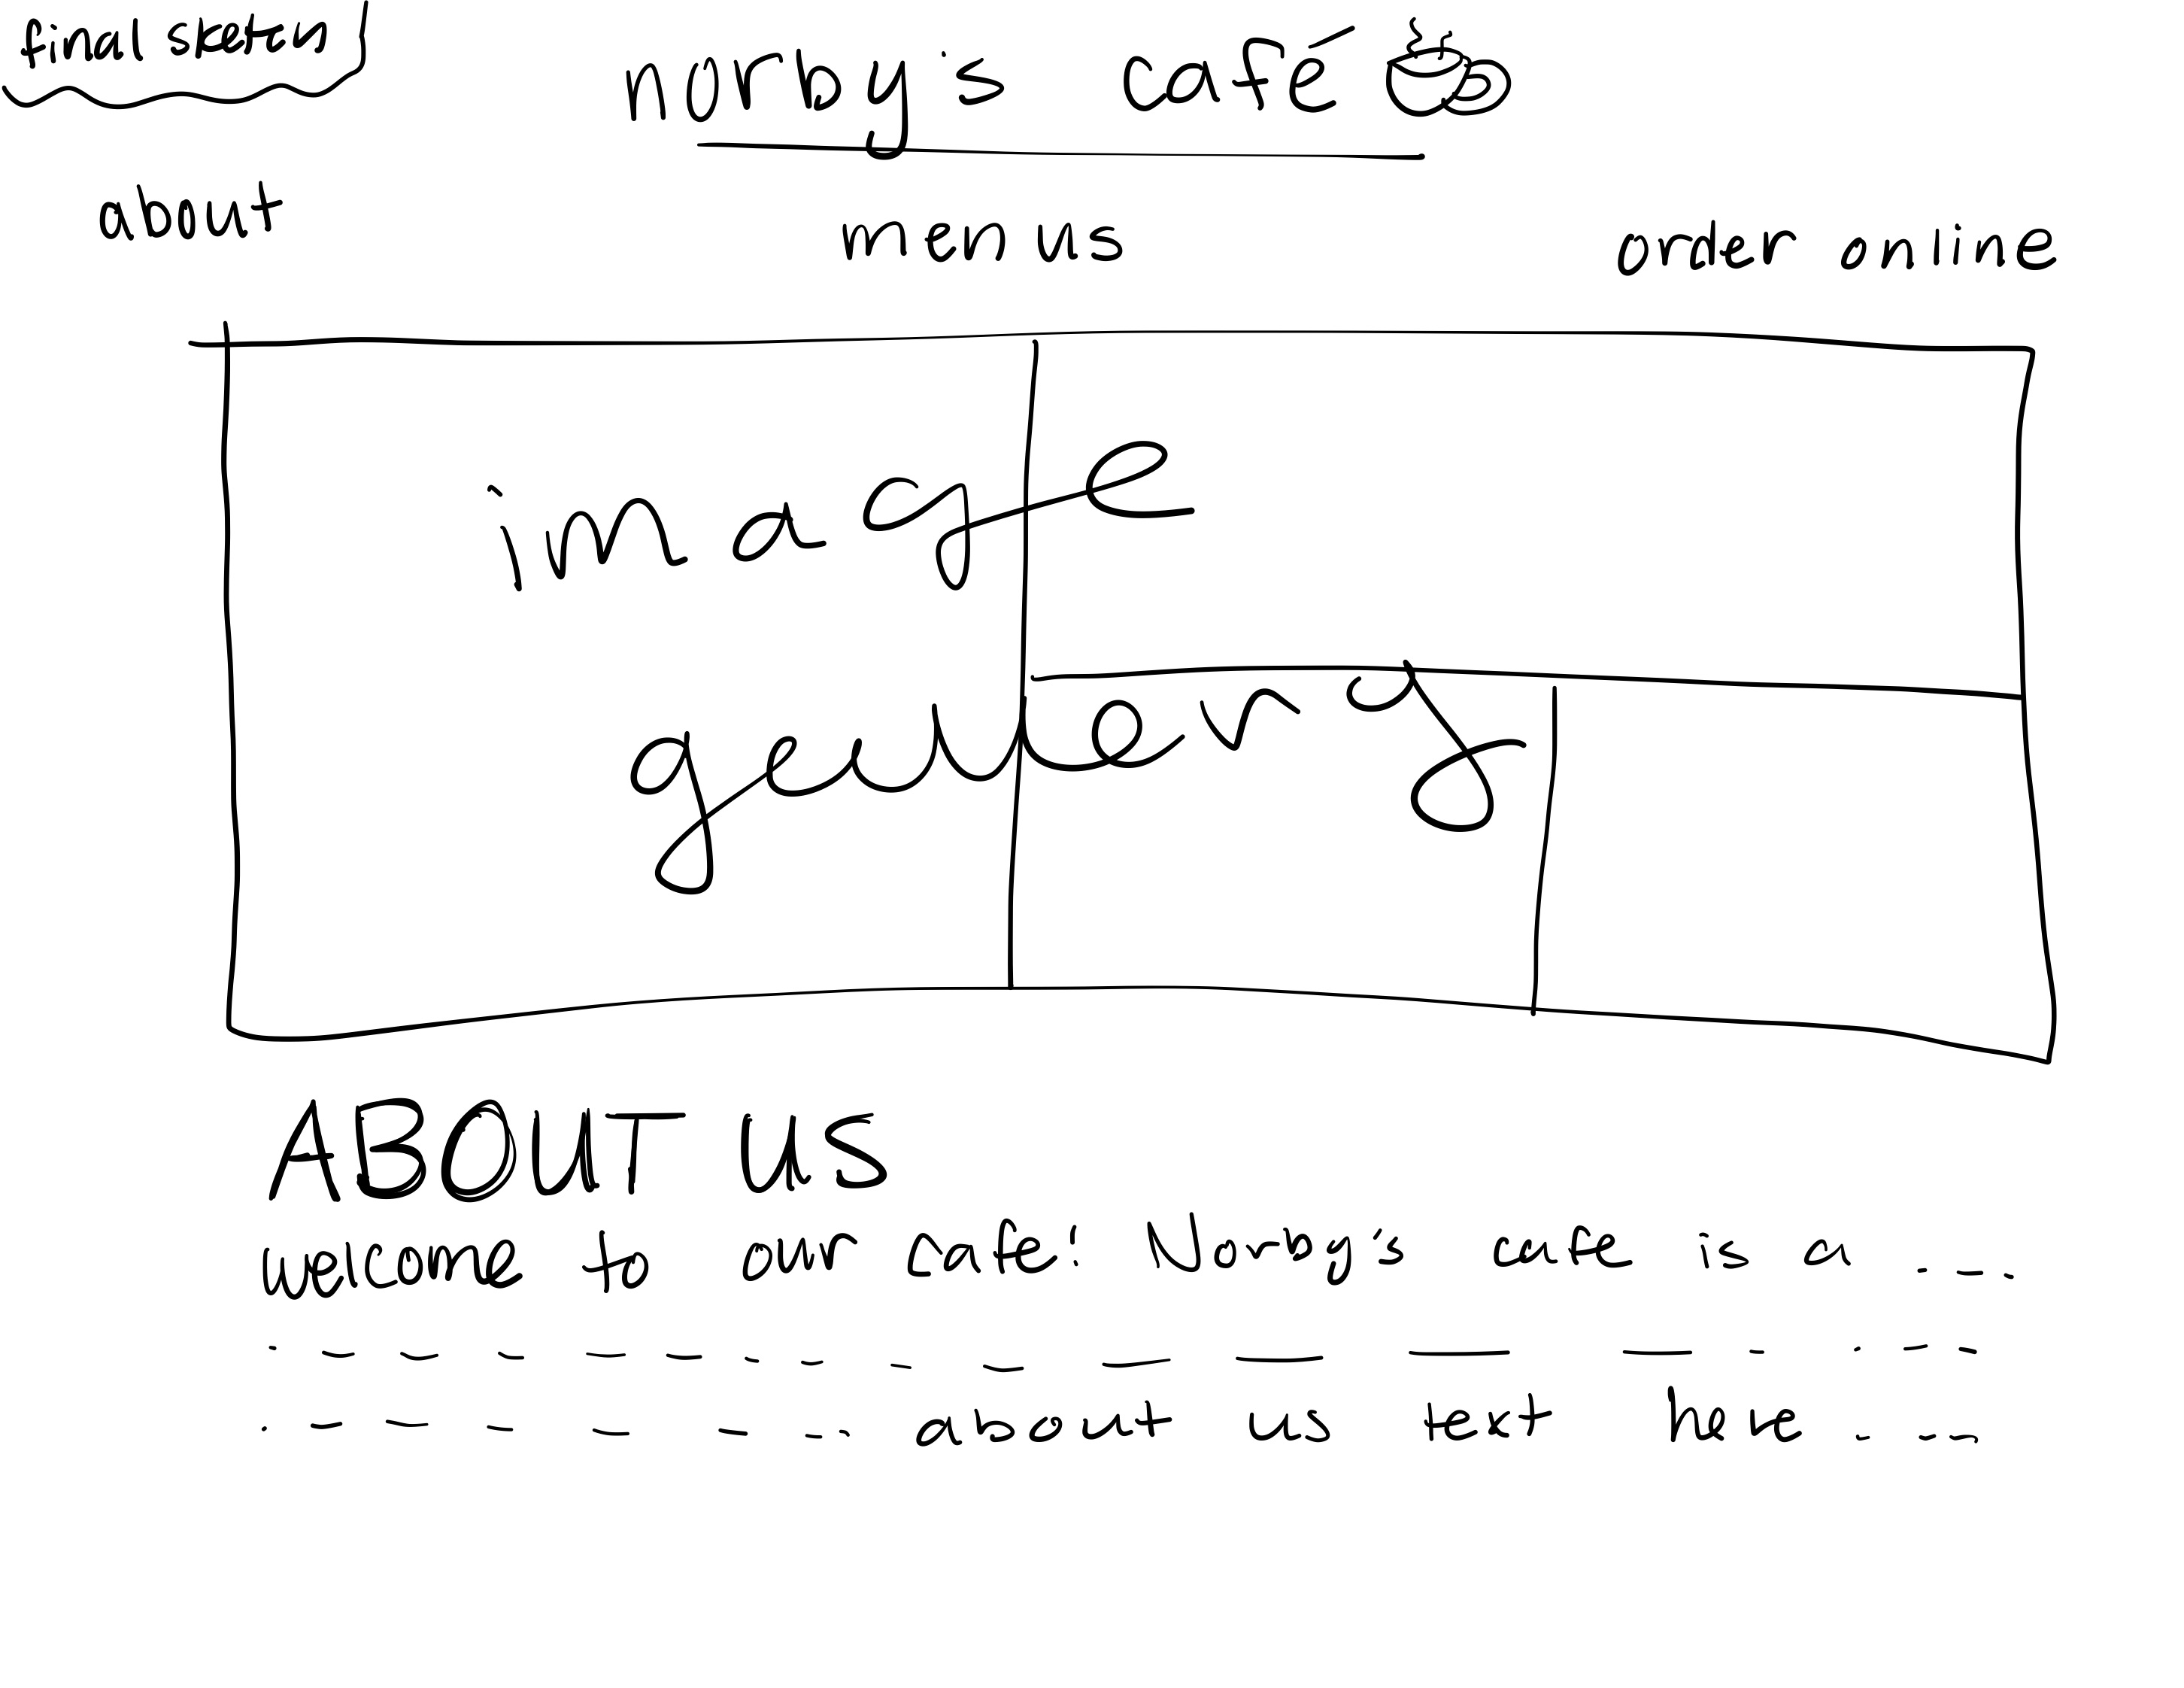 final setup!
norby's café
about menus order online
image
gallery
ABOUT US
welcome to our cafe! Norby's cafe is a ....
about us text here ....